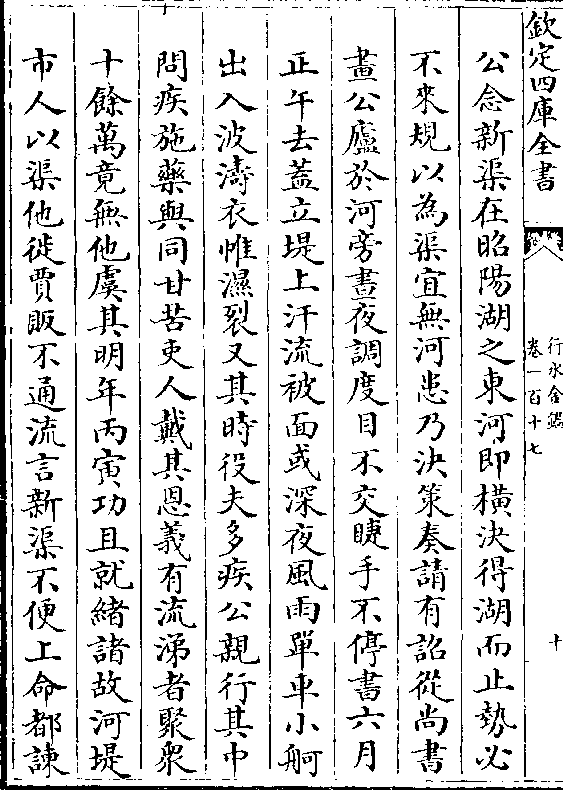 欽定四庫全書
行水金鑑
卷一百十七
十
公念新渠在昭陽湖之東河即横決得湖而止勢必
不來規以為渠宜無河患乃決策奏請有詔從尚書
畫公廬於河旁晝夜調度目不交睫手不停書六月
正午去蓋立堤上汗流被面或深夜風雨單車小舸
出入波濤衣帷濕裂又其時役夫多疾公親行其中
問疾施藥與同甘苦吏人戴其恩義有流涕者聚衆
十餘萬竟無他虞其明年丙寅功且就緒諸故河堤
市人以渠他徙賈販不通流言新渠不便上命都諫